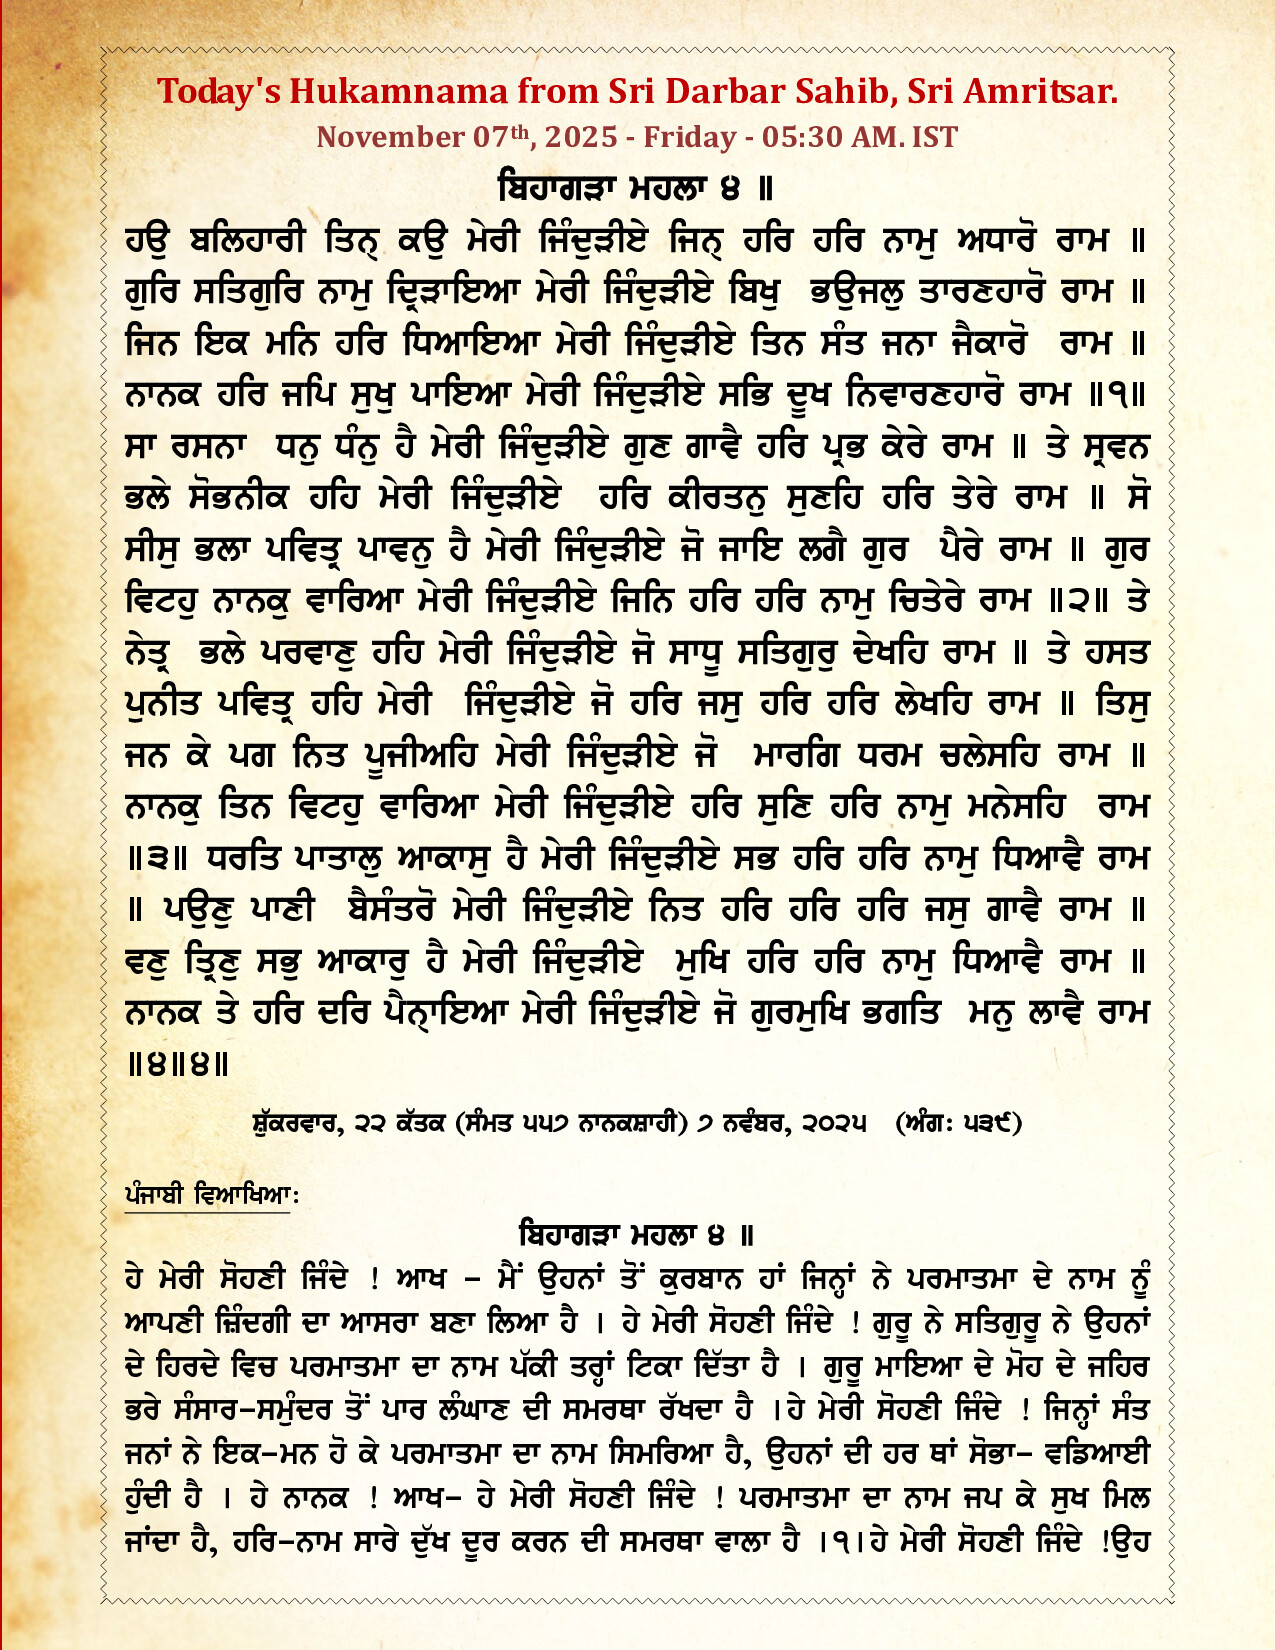 Today's Hukamnama from Sri Darbar Sahib, Sri Amritsar.
November 07th, 2025 - Friday - 05:30 AM. IST
ਬਿਹਾਗੜਾ ਮਹਲਾ ੪ ॥
ਹਉ ਬਲਿਹਾਰੀ ਤਿਨੑ ਕਉ ਮੇਰੀ ਜਿੰਦੁੜੀਏ ਜਿਨੑ ਹਰਿ ਹਰਿ ਨਾਮੁ ਅਧਾਰੋ ਰਾਮ ॥
ਗੁਰਿ ਸਤਿਗੁਰਿ ਨਾਮੁ ਦ੍ਰਿੜਾਇਆ ਮੇਰੀ ਜਿੰਦੁੜੀਏ ਬਿਖੁ ਭਉਜਲੁ ਤਾਰਣਹਾਰੋ ਰਾਮ ॥
ਜਿਨ ਇਕ ਮਨਿ ਹਰਿ ਧਿਆਇਆ ਮੇਰੀ ਜਿੰਦੁੜੀਏ ਤਿਨ ਸੰਤ ਜਨਾ ਜੈਕਾਰੋ ਰਾਮ ॥
ਨਾਨਕ ਹਰਿ ਜਪਿ ਸੁਖੁ ਪਾਇਆ ਮੇਰੀ ਜਿੰਦੁੜੀਏ ਸਭਿ ਦੂਖ ਨਿਵਾਰਣਹਾਰੋ ਰਾਮ ॥੧॥
ਸਾ ਰਸਨਾ ਧਨੁ ਧੰਨੁ ਹੈ ਮੇਰੀ ਜਿੰਦੁੜੀਏ ਗੁਣ ਗਾਵੈ ਹਰਿ ਪ੍ਰਭ ਕੇਰੇ ਰਾਮ ॥ ਤੇ ਸ੍ਰਵਨ
ਭਲੇ ਸੋਭਨੀਕ ਹਹਿ ਮੇਰੀ ਜਿੰਦੁੜੀਏ ਹਰਿ ਕੀਰਤਨੁ ਸੁਣਹਿ ਹਰਿ ਤੇਰੇ ਰਾਮ ॥ ਸੋ
ਸੀਸੁ ਭਲਾ ਪਵਿਤ੍ਰ ਪਾਵਨੁ ਹੈ ਮੇਰੀ ਜਿੰਦੁੜੀਏ ਜੋ ਜਾਇ ਲਗੈ ਗੁਰ ਪੈਰੇ ਰਾਮ ॥ ਗੁਰ
ਵਿਟਹੁ ਨਾਨਕੁ ਵਾਰਿਆ ਮੇਰੀ ਜਿੰਦੁੜੀਏ ਜਿਨਿ ਹਰਿ ਹਰਿ ਨਾਮੁ ਚਿਤੇਰੇ ਰਾਮ ॥੨॥ ਤੇ
ਨੇਤ੍ਰ ਭਲੇ ਪਰਵਾਣੁ ਹਹਿ ਮੇਰੀ ਜਿੰਦੁੜੀਏ ਜੋ ਸਾਧੂ ਸਤਿਗੁਰੁ ਦੇਖਹਿ ਰਾਮ ॥ ਤੇ ਹਸਤ
ਪੁਨੀਤ ਪਵਿਤ੍ਰ ਹਹਿ ਮੇਰੀ ਜਿੰਦੁੜੀਏ ਜੋ ਹਰਿ ਜਸੁ ਹਰਿ ਹਰਿ ਲੇਖਹਿ ਰਾਮ ॥ ਤਿਸੁ
ਜਨ ਕੇ ਪਗ ਨਿਤ ਪੂਜੀਅਹਿ ਮੇਰੀ ਜਿੰਦੁੜੀਏ ਜੋ ਮਾਰਗਿ ਧਰਮ ਚਲੇਸਹਿ ਰਾਮ ॥
ਨਾਨਕੁ ਤਿਨ ਵਿਟਹੁ ਵਾਰਿਆ ਮੇਰੀ ਜਿੰਦੁੜੀਏ ਹਰਿ ਸੁਣਿ ਹਰਿ ਨਾਮੁ ਮਨੇਸਹਿ ਰਾਮ
॥੩॥ ਧਰਤਿ ਪਾਤਾਲੁ ਆਕਾਸੁ ਹੈ ਮੇਰੀ ਜਿੰਦੁੜੀਏ ਸਭ ਹਰਿ ਹਰਿ ਨਾਮੁ ਧਿਆਵੈ ਰਾਮ
॥ ਪਉਣੁ ਪਾਣੀ ਬੈਸੰਤਰੋ ਮੇਰੀ ਜਿੰਦੁੜੀਏ ਨਿਤ ਹਰਿ ਹਰਿ ਹਰਿ ਜਸੁ ਗਾਵੈ ਰਾਮ ॥
ਵਣੁ ਤ੍ਰਿਣੁ ਸਭੁ ਆਕਾਰੁ ਹੈ ਮੇਰੀ ਜਿੰਦੁੜੀਏ ਮੁਖਿ ਹਰਿ ਹਰਿ ਨਾਮੁ ਧਿਆਵੈ ਰਾਮ ॥
ਨਾਨਕ ਤੇ ਹਰਿ ਦਰਿ ਪੈਨੑਾਇਆ ਮੇਰੀ ਜਿੰਦੁੜੀਏ ਜੋ ਗੁਰਮੁਖਿ ਭਗਤਿ ਮਨੁ ਲਾਵੈ ਰਾਮ
॥੪॥੪॥
ਸ਼ੁੱਕਰਵਾਰ, ੨੨ ਕੱਤਕ (ਸੰਮਤ ੫੫੭ ਨਾਨਕਸ਼ਾਹੀ) ੭ ਨਵੰਬਰ, ੨੦੨੫ (ਅੰਗ: ੫੩੯)
ਪੰਜਾਬੀ ਵਿਆਖਿਆ:
ਬਿਹਾਗੜਾ ਮਹਲਾ ੪ ॥
ਹੇ ਮੇਰੀ ਸੋਹਣੀ ਜਿੰਦੇ ! ਆਖ – ਮੈਂ ਉਹਨਾਂ ਤੋਂ ਕੁਰਬਾਨ ਹਾਂ ਜਿਨ੍ਹਾਂ ਨੇ ਪਰਮਾਤਮਾ ਦੇ ਨਾਮ ਨੂੰ
ਆਪਣੀ ਜ਼ਿੰਦਗੀ ਦਾ ਆਸਰਾ ਬਣਾ ਲਿਆ ਹੈ । ਹੇ ਮੇਰੀ ਸੋਹਣੀ ਜਿੰਦੇ ! ਗੁਰੂ ਨੇ ਸਤਿਗੁਰੂ ਨੇ ਉਹਨਾਂ
ਦੇ ਹਿਰਦੇ ਵਿਚ ਪਰਮਾਤਮਾ ਦਾ ਨਾਮ ਪੱਕੀ ਤਰ੍ਹਾਂ ਟਿਕਾ ਦਿੱਤਾ ਹੈ । ਗੁਰੂ ਮਾਇਆ ਦੇ ਮੋਹ ਦੇ ਜਹਿਰ
ਭਰੇ ਸੰਸਾਰ-ਸਮੁੰਦਰ ਤੋਂ ਪਾਰ ਲੰਘਾਣ ਦੀ ਸਮਰਥਾ ਰੱਖਦਾ ਹੈ ।ਹੇ ਮੇਰੀ ਸੋਹਣੀ ਜਿੰਦੇ ! ਜਿਨ੍ਹਾਂ ਸੰਤ
ਜਨਾਂ ਨੇ ਇਕ-ਮਨ ਹੋ ਕੇ ਪਰਮਾਤਮਾ ਦਾ ਨਾਮ ਸਿਮਰਿਆ ਹੈ, ਉਹਨਾਂ ਦੀ ਹਰ ਥਾਂ ਸੋਭਾ- ਵਡਿਆਈ
ਹੁੰਦੀ ਹੈ । ਹੇ ਨਾਨਕ ! ਆਖ- ਹੇ ਮੇਰੀ ਸੋਹਣੀ ਜਿੰਦੇ ! ਪਰਮਾਤਮਾ ਦਾ ਨਾਮ ਜਪ ਕੇ ਸੁਖ ਮਿਲ
ਜਾਂਦਾ ਹੈ, ਹਰਿ-ਨਾਮ ਸਾਰੇ ਦੁੱਖ ਦੂਰ ਕਰਨ ਦੀ ਸਮਰਥਾ ਵਾਲਾ ਹੈ ।੧।ਹੇ ਮੇਰੀ ਸੋਹਣੀ ਜਿੰਦੇ !ਉਹ